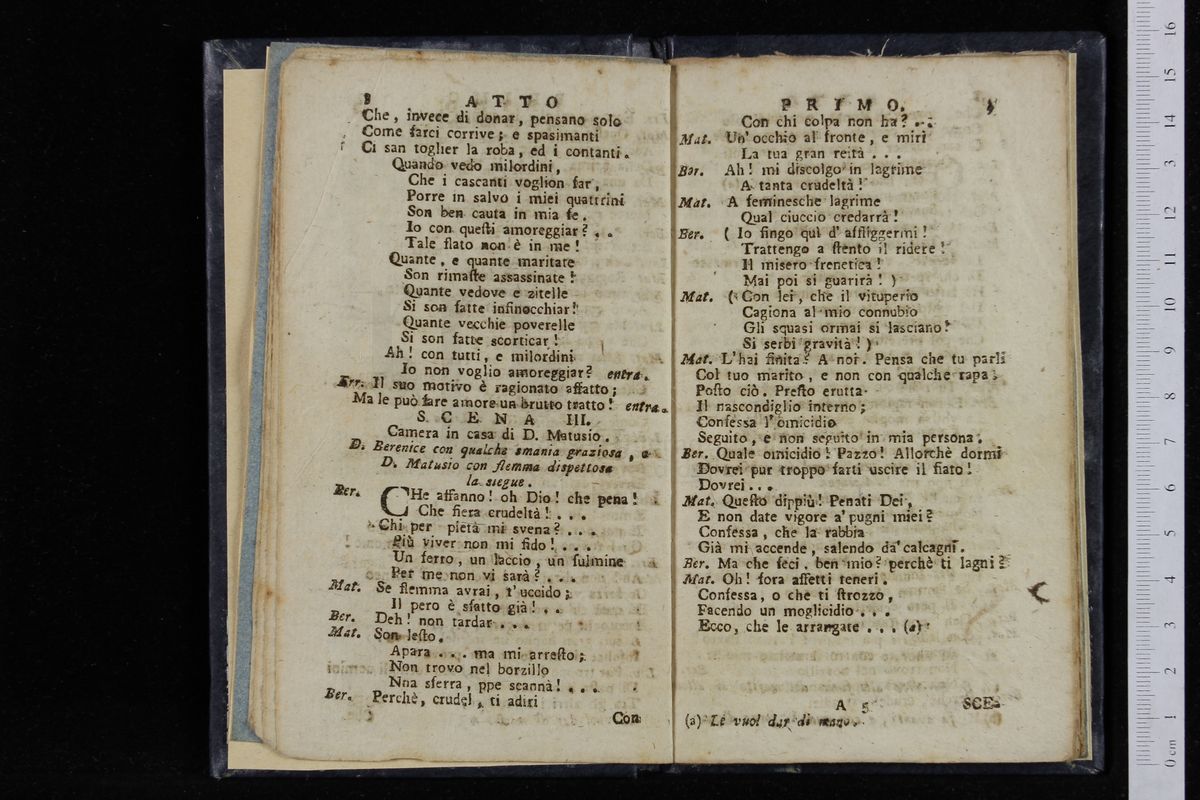 8 ATTO
Che, invece di donar, pensano solo
Come farci corrive; e spasimanti
Ci san toglier la roba, ed i contanti.
Quando vedo milordini,
Che i cascanti voglion far,
Porre in salvo i miei quattrini
Son ben cauta in mia fe.
Io con questi amoreggiar? . .
Tale flato non è in me!
Quante, e quante maritate
Son rimaste assassinate!
Quante vedove e zitelle
Si son fatte infinocchiar!
Quante vecchie poverelle
Si son fatte scorticar!
Ah! con tutti, e milordini
Io non voglio amoreggiar? entra.
Err. Il suo motivo è ragionato affatto;
Ma le può fare amore un brutto tratto! entra.
SCENA III.
Camera in casa di D. Matusio.
D. Berenice con qualche smania graziosa, e
D. Matusio con flemma dispettosa
la siegue.
Ber. CHe affanno! oh Dio! che pena!
Che fiera crudeltà! . . .
Chi per pietà mi svena? . . .
Più viver non mi fido! . . .
Un ferro, un laccio, un fulmine
Per me non vi sarà? . . .
Mat. Se flemma avrai, t'uccido;
Il pero è sfatto già! . .
Ber. Deh! non tardar . . .
Mat. Son lesto.
Apara . . . ma mi arresto;
Non trovo nel borzillo
Nna sferra, ppe scannà! . . .
Ber. Perchè, crudel, ti adiri
Con
PRIMO.
Con chi colpa non ha? . .
Mat. Un'occhio al fronte, e miri
La tua gran reità . . .
Ber. Ah! mi discolgo in lagrime
A tanta crudeltà!
Mat. A feminesche lagrime
Qual ciuccio credarrà!
Ber. ( Io fingo quì d'affliggermi!
Trattengo a stento il ridere!
Il misero frenetica!
Mai poi si guarirà! )
Mat. ( Con lei, che il vituperio
Cagiona al mio connubio
Gli squasi ormai si lasciano!
Si serbi gravità! )
Mat. L'hai finita? A noi. Pensa che tu parli
Col tuo marito, e non con qualche rapa:
Posto ciò. Presto erutta
Il nascondiglio interno;
Confessa l'omicidio
Seguito, e non seguito in mia persona.
Ber. Quale omicidio! Pazzo! Allorchè dormi
Dovrei pur troppo farti uscire il fiato!
Dovrei . . .
Mat. Questo dippiù! Penati Dei,
E non date vigore a' pugni miei?
Confessa, che la rabbia
Già mi accende, salendo da' calcagni.
Ber. Ma che feci, ben mio? perchè ti lagni?
Mat. Oh! fora affetti teneri.
Confessa, o che ti strozzo,
Facendo un moglicidio . . .
Ecco, che le arrangate . . . (a)
A 5 SCE-
(a) Le vuol dar di mano.